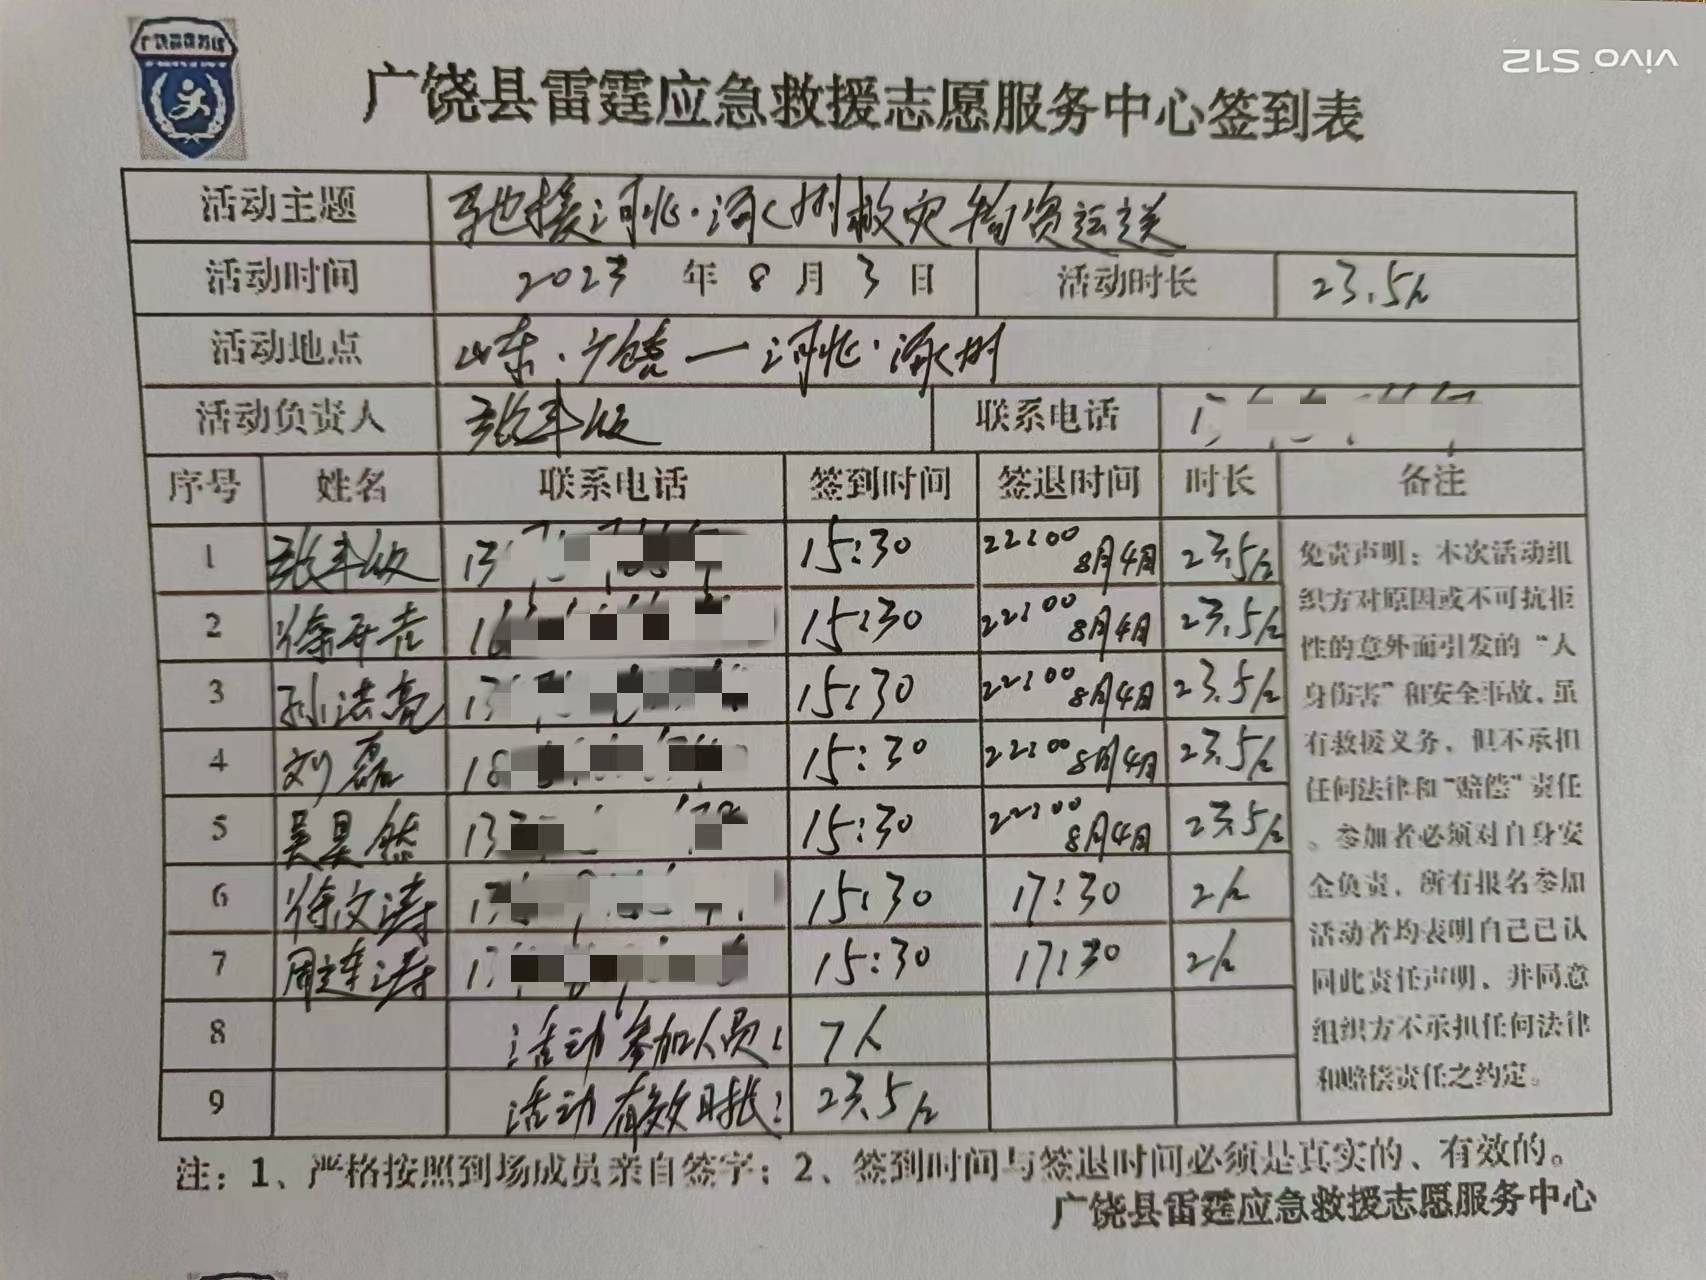 vivo S12
广饶县雷霆应急救援志愿服务中心签到表
活动主题 驰援河北·涿州救灾物资运送
活动时间 2023 年 8 月 3 日 活动时长 23.5h
活动地点 山东·广饶——河北·涿州
活动负责人 联系电话
序号 姓名 联系电话 签到时间 签退时间 时长 备注
1 15:30 22:00 8月4日 23.5h
2 15:30 22:00 8月4日 23.5h
3 孙洪亮 15:30 22:00 8月4日 23.5h
4 刘磊 15:30 22:00 8月4日 23.5h
5 吴昊然 15:30 22:00 8月4日 23.5h
6 徐文涛 15:30 17:30 2h
7 周连涛 15:30 17:30 2h
8 活动参加人员: 7人
9 活动有效时长: 23.5h
免责声明：本次活动组
织方对原因或不可抗拒
性的意外面引发的“人
身伤害”和安全事故，虽
有救援义务，但不承担
任何法律和“赔偿”责任
。参加者必须对自身安
全负责，所有报名参加
活动者均表明自己已认
同此责任声明，并同意
组织方不承担任何法律
和赔偿责任之约定。
注：1、严格按照到场成员亲自签字；2、签到时间与签退时间必须是真实的、有效的。
广饶县雷霆应急救援志愿服务中心